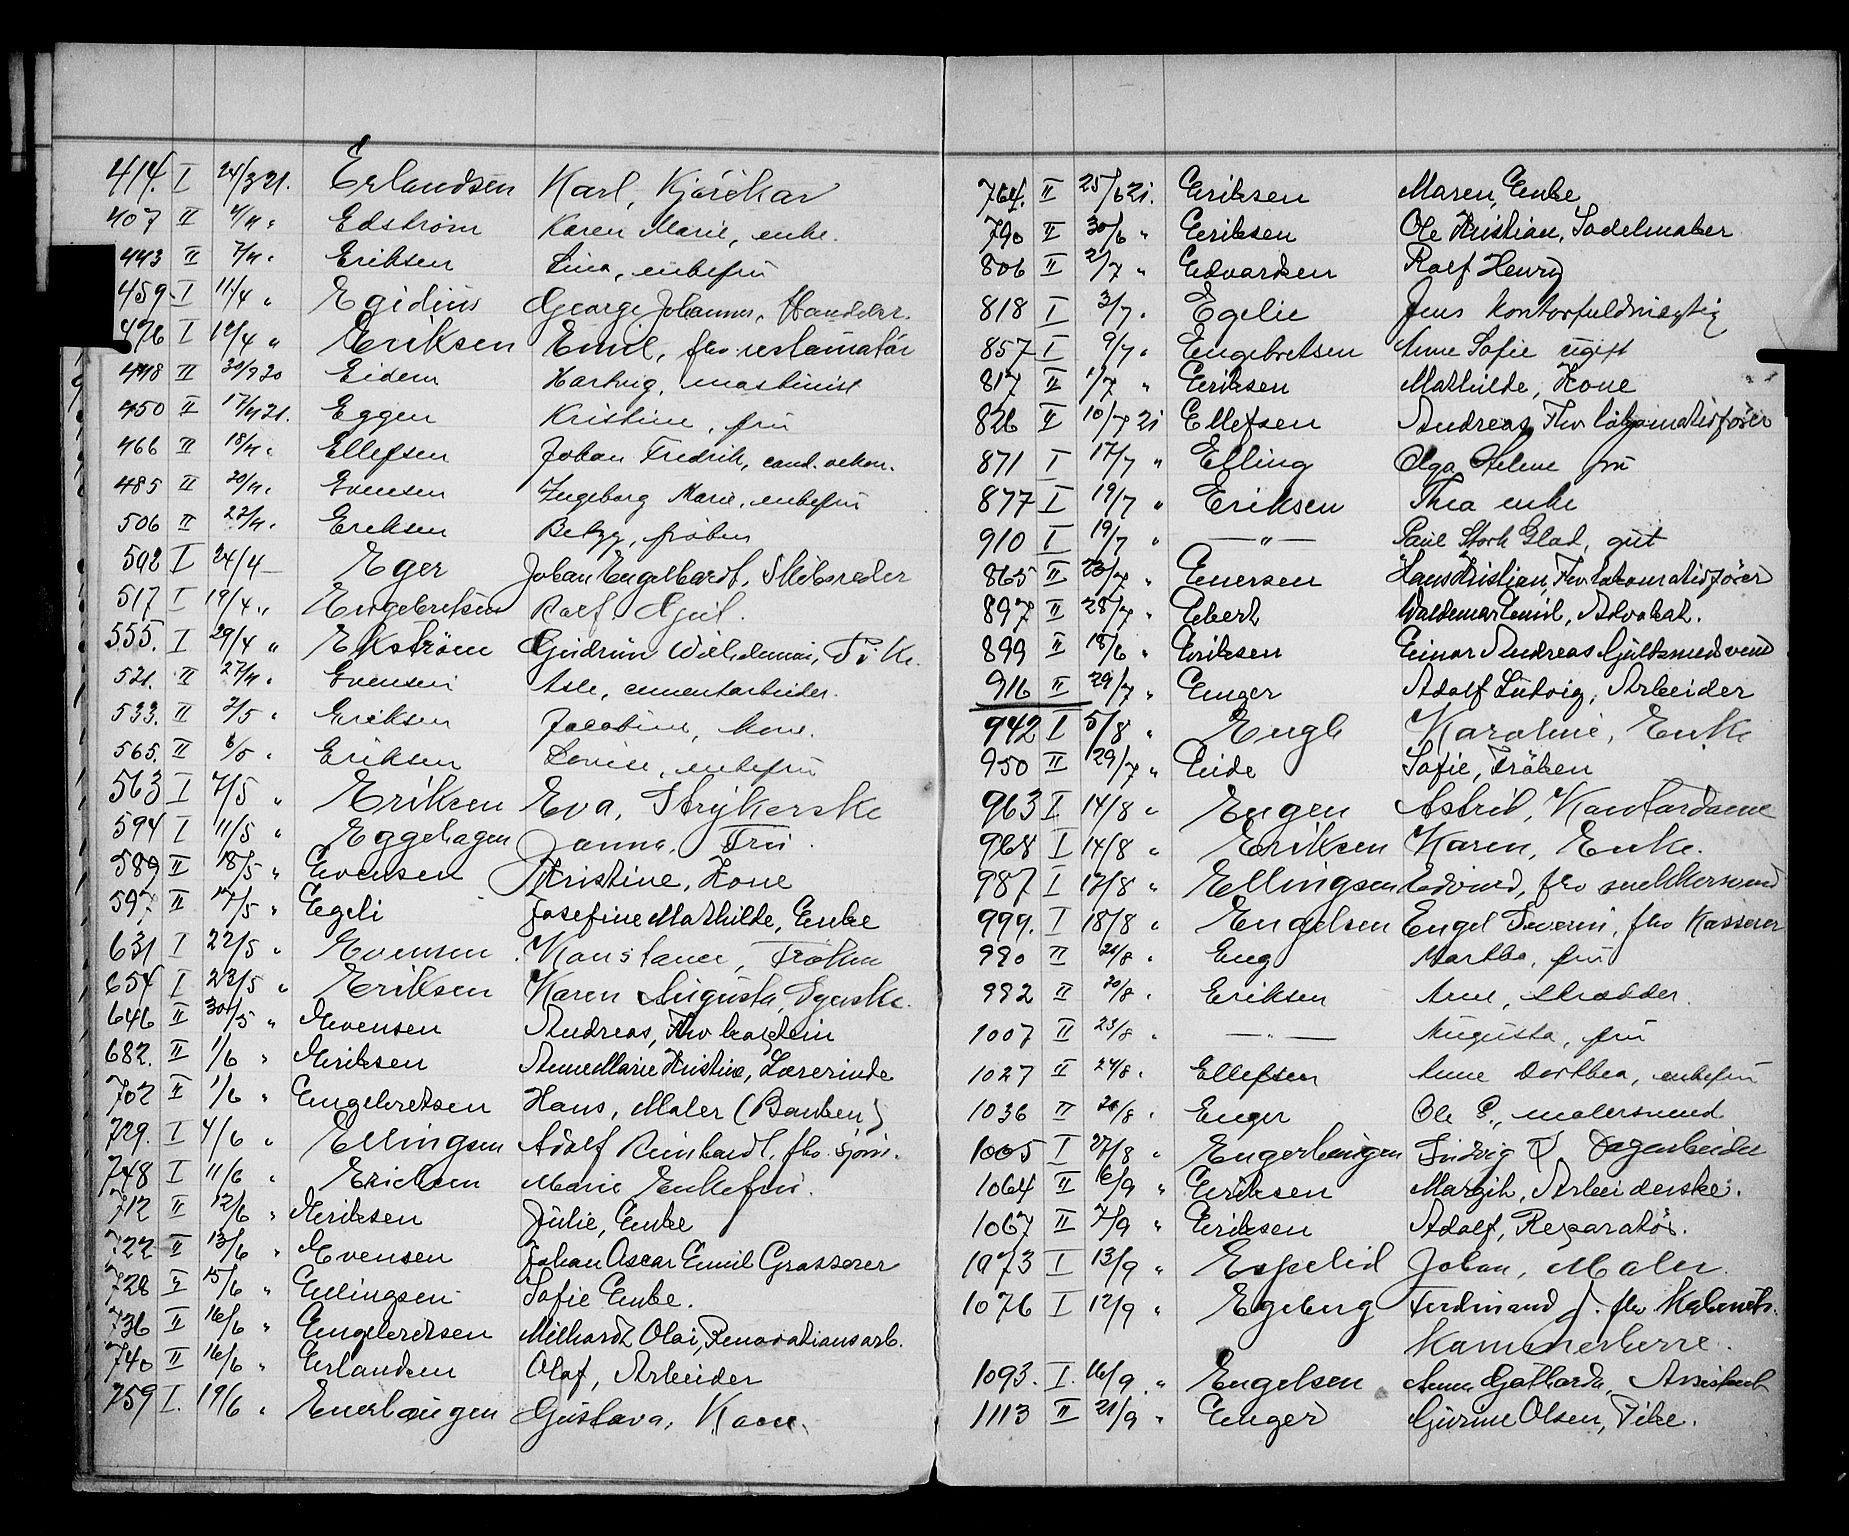 414. I 24/3 21. Erlandsen Karl, Kjörekar
407 II 4/4 " Edström Karen Marie, enke.
443 II 7/4 " Eriksen Lina, enkefru
459. I 11/4 " Egidius George Johannes, Handelsr.
476 I 12/4 " Eriksen Emil, fhv. restauratör
448 II 30/9 20 Eidem Hartvig, maskinist
450 II 17/4 21. Eggen Kristine, fru
466 II 18/4 " Ellefsen Johan Fredrik, cand. oekon.
485 II 20/4 " Evensen Ingeborg Marie, enkefru
506 II 22/4 " Eriksen Betzy, fröken
592 I 24/4 — Eger Johan Engelhardt, Skibsreder
517 I 19/4 " Engebretsen Rolf. Gjul.
555. I 29/4 " Ekström Gudrun Wilhelmine, Pike.
521. II 27/4 " Evensen Asle, cementarbeider.
533. II 2/5 " Eriksen Jacobine, kone.
565. II 6/5 " Eriksen Lovise, enkefru
563 I 7/5 " Eriksen Eva, Strykerske
594 I 11/5 " Eggehagen Janna, Fru.
589 II 18/5 " Evensen Kristine, Kone
597 II 17/5 " Egeli Josefine Mathilde, Enke
631 I 22/5 " Evensen Konstance, Frøken
654 I 23/5 " Eriksen Karen Augusta, Syerske.
646 II 30/5 " Evensen Andreas, Fhv kaptein
682. II 1/6 " Eriksen Anne Marie Kristine, Lærerinde
702 II 1/6 " Engebretsen Hans, Maler (Banken)
729. I 4/6 " Ellingsen Adolf Reinhardt, fhv. sjöm.
748 I 11/6 " Erichsen Marie Enkefru.
712 II 12/6 " Eriksen Julie, Enke
722 II 13/6 " Evensen Johan Oscar Emil Grosserer
728 II 15/6 " Ellingsen Sofie Enke.
736 II 16/6 " Engebretsen Milhardt Olai, Renovationsarb.
740 II 16/6 " Erlandsen Olaf, Arbeider
759 I. 19/6 " Enerhaugen Gustava, Kone.
764. II 25/6 21. Eriksen Maren, Enke
790 II 30/6 " Eriksen Ole Kristian, Sadelmaker
806 II 2/7 " Edvardsen Rolf Henry
818 I 3/7 " Egelie Jens kontorfuldmægtig
857 I 9/7 " Engebretsen Anne Sofie ugift
817 II 1/7 " Eriksen Mathilde, Kone
826 II 10/7 21 Ellefsen Andreas, Fhv lokomotivfører
871 I 17/7 " Elling Olga Helene fru
877 I 19/7 " Eriksen Thea enke
910 I 19/7 " —"— Paul Stork Glad, gut
865 II 23/7 " Enersen Hans Kristian, Fhv lokomotivfører
897 II 28/7 " Ebert Waldemar Emil, Advokat.
899 II 18/6 " Eriksen Einar Andreas Guldsmedsvend
916 II 29/7 " Enger Adolf Ludvig, Arbeider
942 I 5/8 " Engh Karoline, Enke
950 II 29/7 " Eide Sofie, Fröken
963 I 14/8 " Engen Astrid, Kontordame
968 I 14/8 " Eriksen Karen, Enke.
987 I 17/8 " Ellingsen Edvind, fhv snekkersvend
999. I 18/8 " Engelsen Engel Severin, fhv Kasserer
980 II 21/8 " Eng Martha, fru
982 II 20/8 " Eriksen Arne, skrædder.
1007 II 23/8 " —"— Augusta, fru
1027 II 24/8 " Ellefsen Anne Dorthea, enkefru
1036 II 26/8 " Enger Ole E., malersvend
1005 I 27/8 " Engerhaugen Ludvig Dagarbeider
1064 II 6/9 " Eriksen Margit, Arbeiderske.
1067 II 7/9 " Eriksen Adolf, Reparatör.
1073 I 13/9 " Espelid Johan, Maler.
1076 I 12/9 " Egeberg Ferdinand J. fhv Kabinets-
Kammerherre.
1093. I. 16/9 " Engelsen Anna Gotharda, Assistent
1113 II 21/9 " Enger Gurine Olsen, Pike.